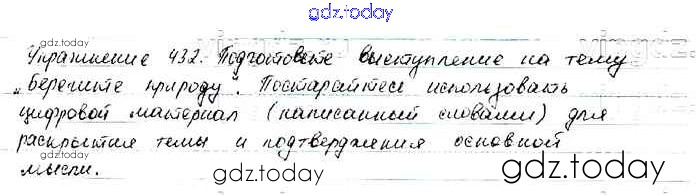 gdz.today
Упражнение 432. Подготовьте выступление на тему
gdz.today
„Берегите природу". Постарайтесь использовать
цифровой материал (написанный словами) для
раскрытия темы и подтверждения основной
мысли.
gdz.today
gdz.today